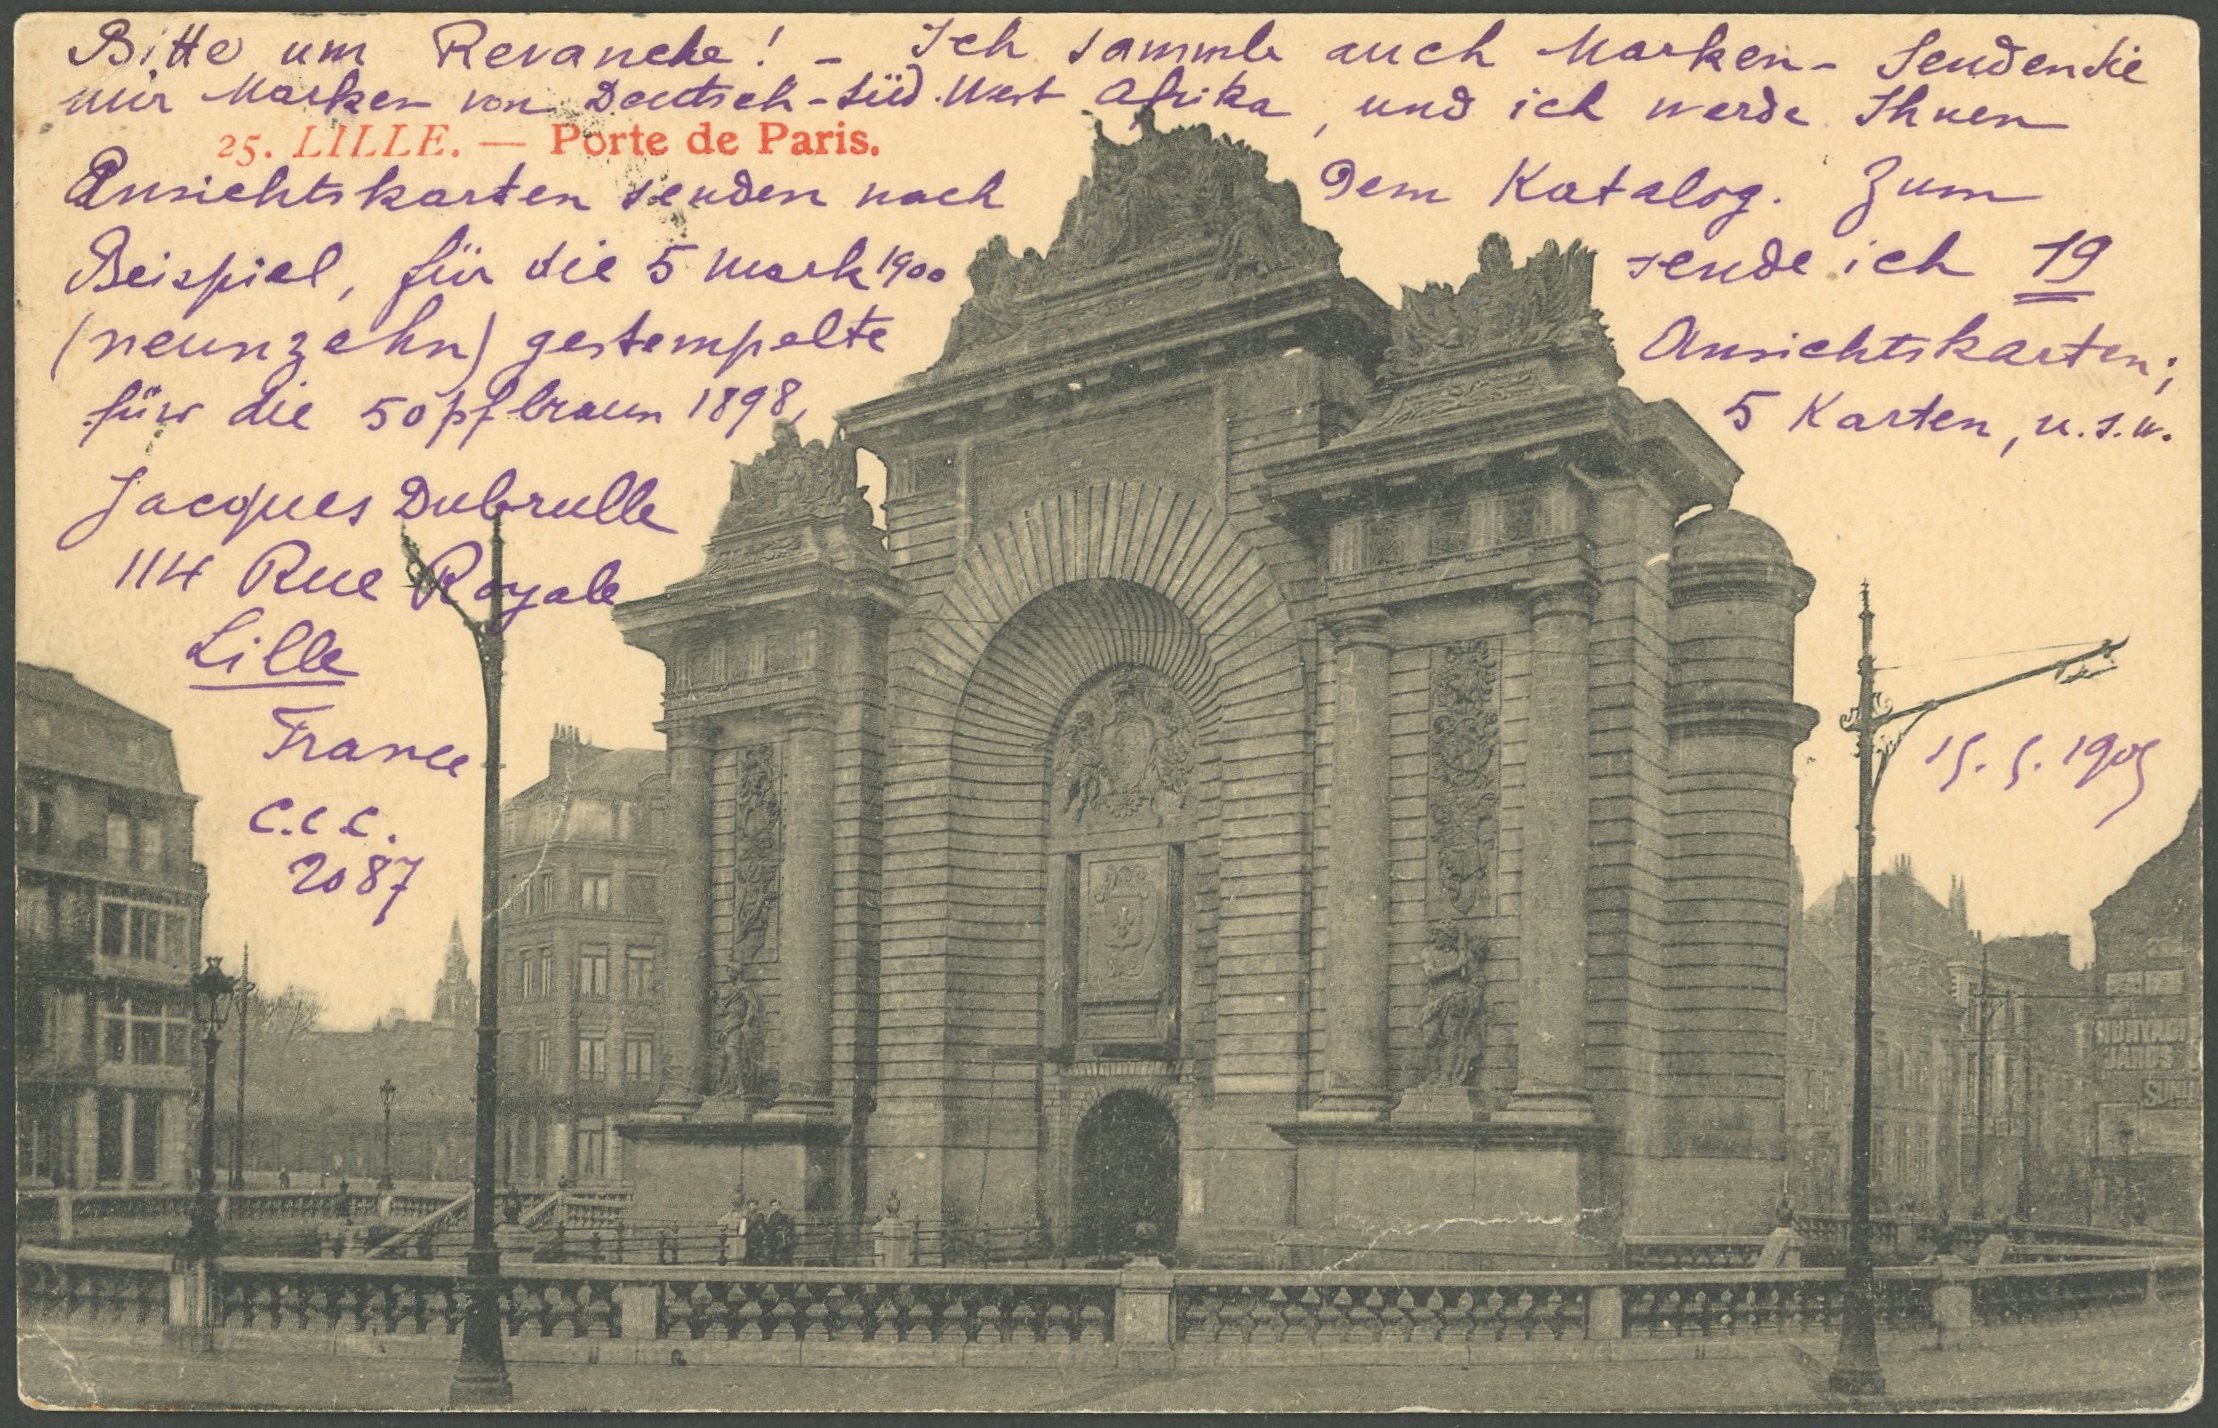 Bitte um Revanche! - Ich sammle auch Marken - Senden Sie
mir Marken von Deutsch-Süd.West Afrika, und ich werde Ihnen
25. LILLE. — Porte de Paris.
Ansichtskarten senden nach dem Katalog. Zum
Beispiel, für die 5 Mark 1900 sende ich 19
(neunzehn) gestempelte Ansichtskarten;
für die 50 pf braun 1898, 5 Karten, u.s.w.
Jacques Dubrulle
114 Rue Royale
Lille
France
15.5.1905
C.C.C.
2087
HUNYADI
JANOS